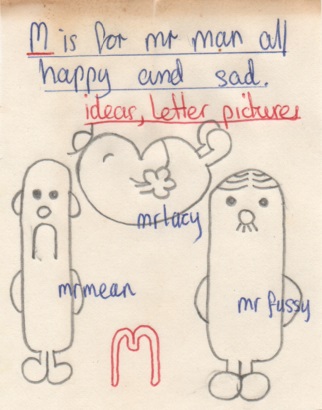 M is for mr man all
happy and sad.
ideas, Letter pictures
mr lacy
mr mean
mr fussy
M